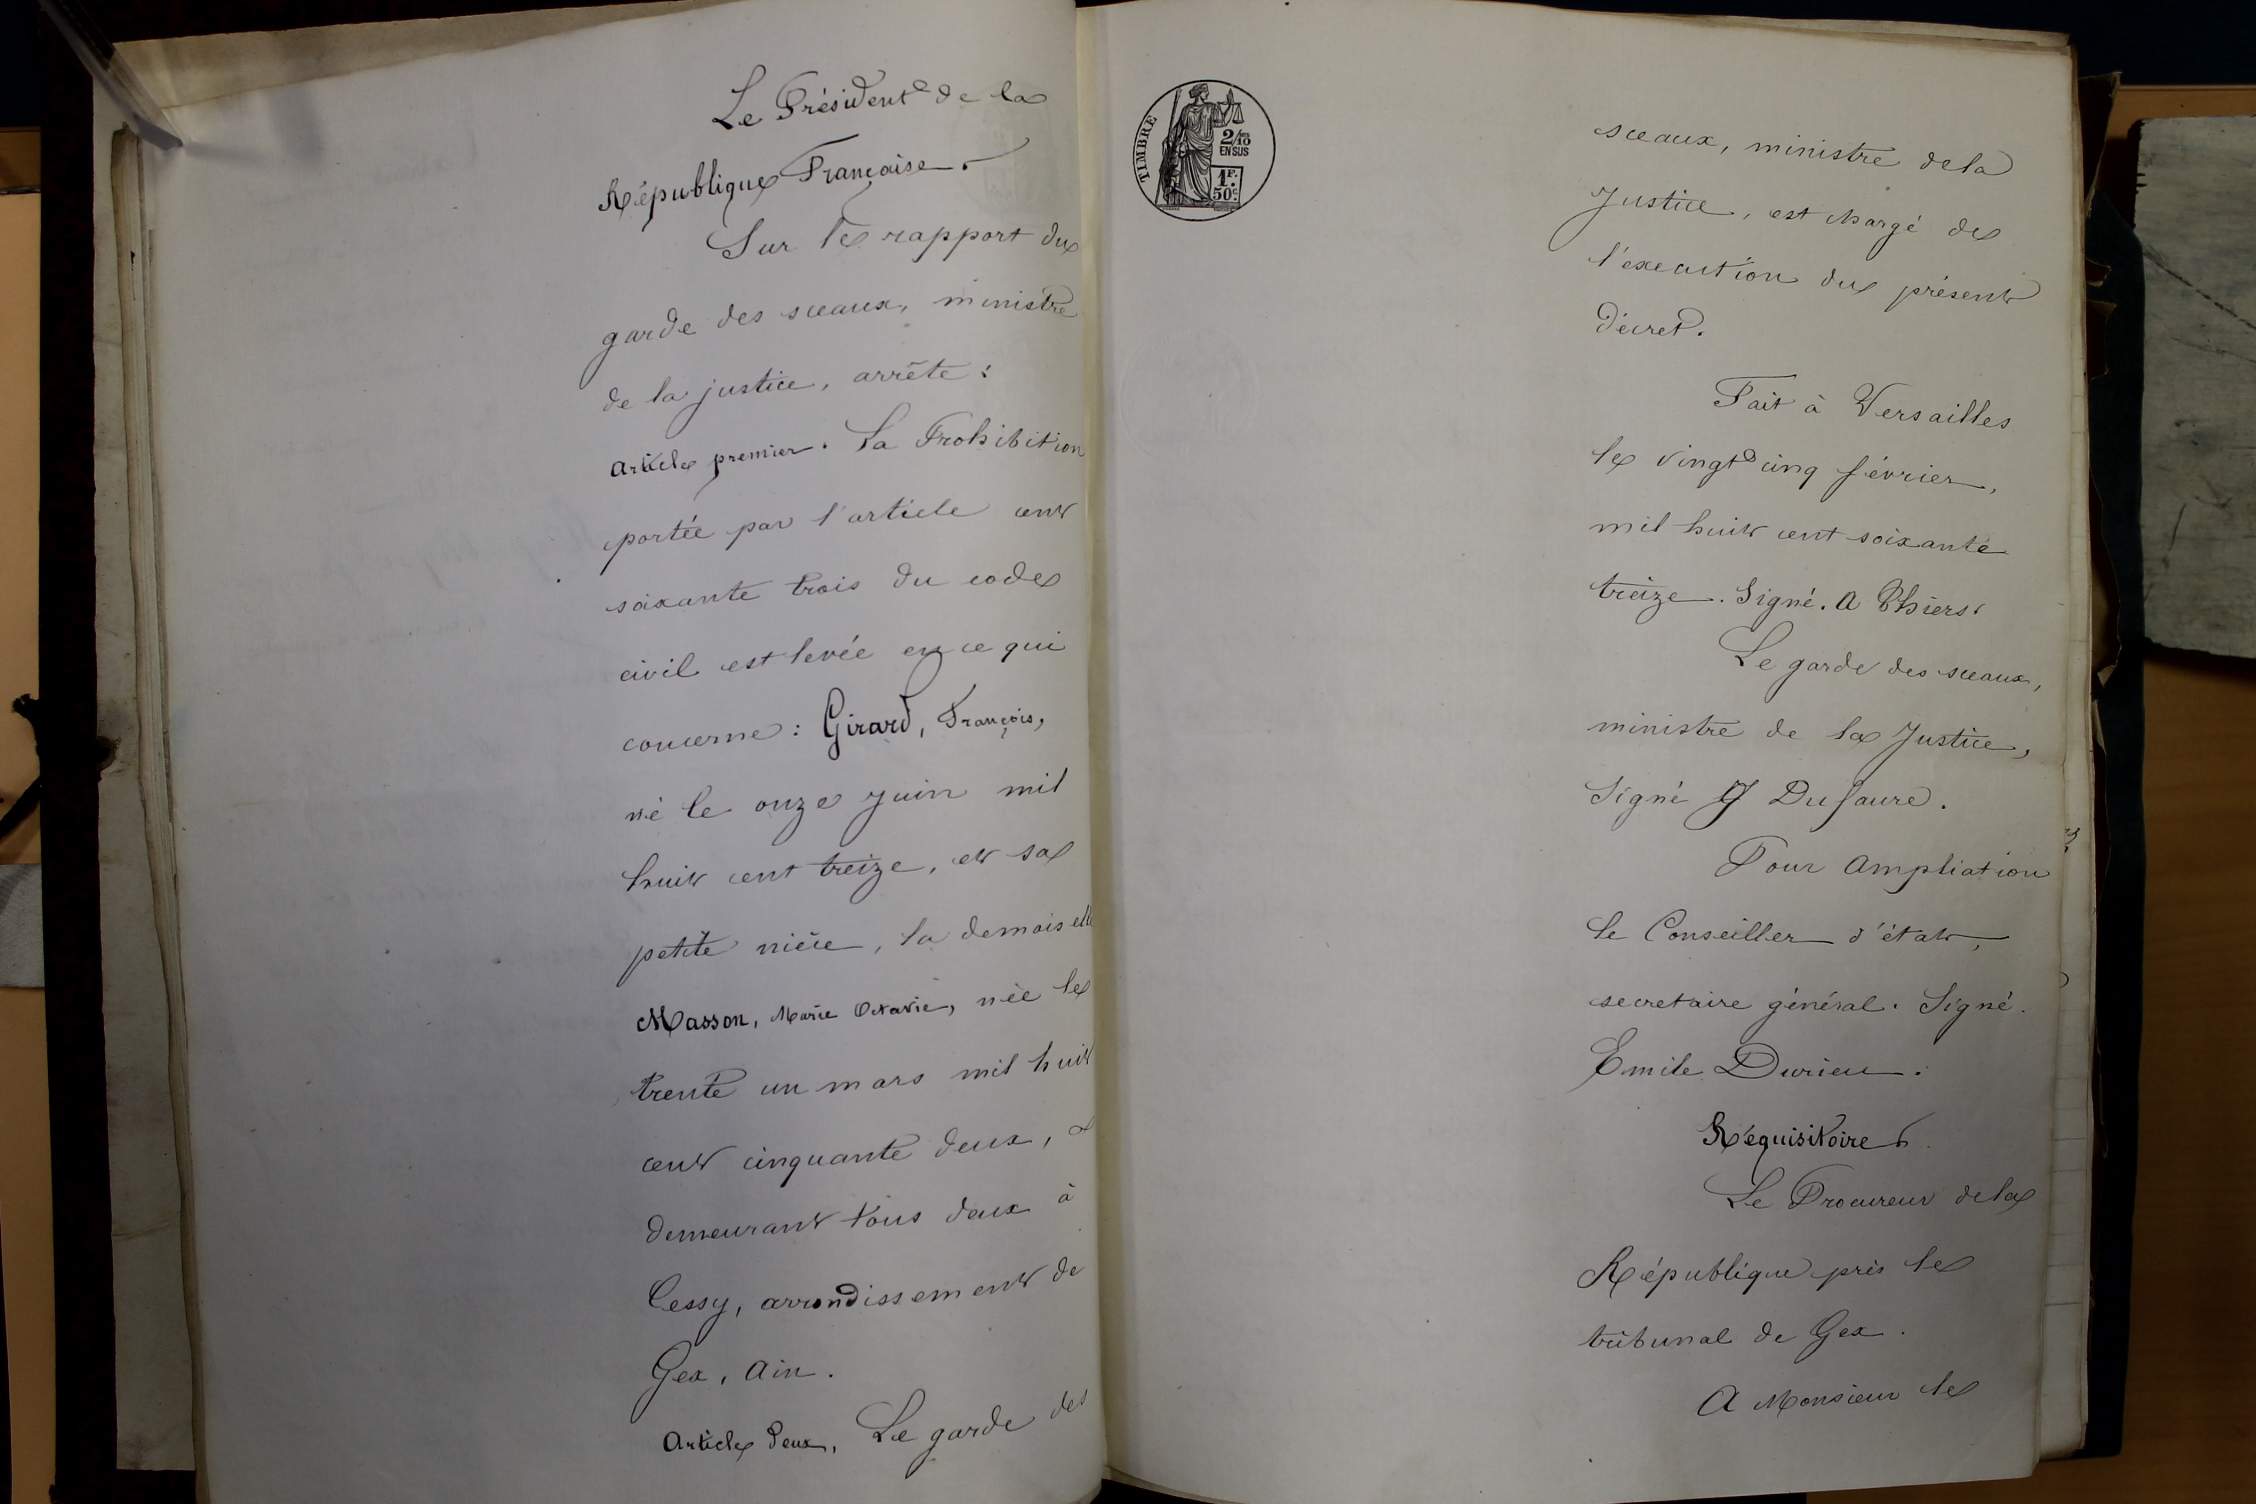 Le Président de la
République Française.
Sur le rapport du
garde des sceaux, ministre
de la justice, arrête :
Article premier. La Prohibition
portée par l'article cent
soixante trois du code
civil est levée en ce qui
concerne : Girard, François,
né le onze juin mil
huit cent treize, et sa
petite nièce, la demoiselle
Masson, Marie Octavie, née le
trente un mars mil huit
cent cinquante deux, &
demeurant tous deux à
Cessy, arrondissement de
Gex, Ain.
Article deux, Le garde des
TIMBRE
2/10
EN SUS
1F.
50c.
sceaux, ministre de la
Justice, est chargé de
l'execution du présent
décret.
Fait à Versailles
le vingt cinq février,
mil huit cent soixante
treize. Signé. A Thiers.
Le garde des sceaux,
ministre de la Justice,
Signé J Dufaure.
Pour Ampliation
le Conseiller d'état,
secretaire général. Signé.
Emile Durieu.
Réquisitoire
Le Procureur de la
République près le
tribunal de Gex.
A Monsieur le